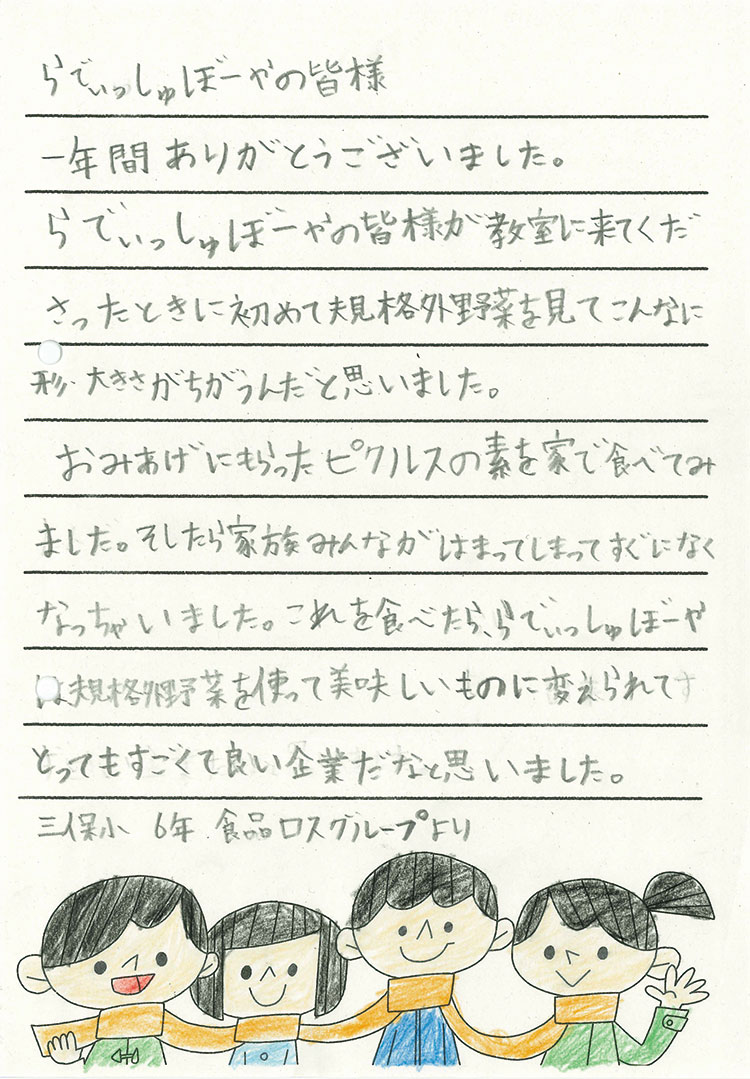 らでぃっしゅぼーやの皆様
一年間ありがとうございました。
らでぃっしゅぼーやの皆様が教室に来てくだ
さったときに初めて規格外野菜を見てこんなに
形・大きさがちがうんだと思いました。
おみあげにもらったピクルスの素を家で食べてみ
ました。そしたら家族みんながはまってしまってすぐになく
なっちゃいました。これを食べたら、らでぃっしゅぼーや
は規格外野菜を使って美味しいものに変えられてす
とってもすごくて良い企業だなと思いました。
三保小 6年 食品ロスグループより